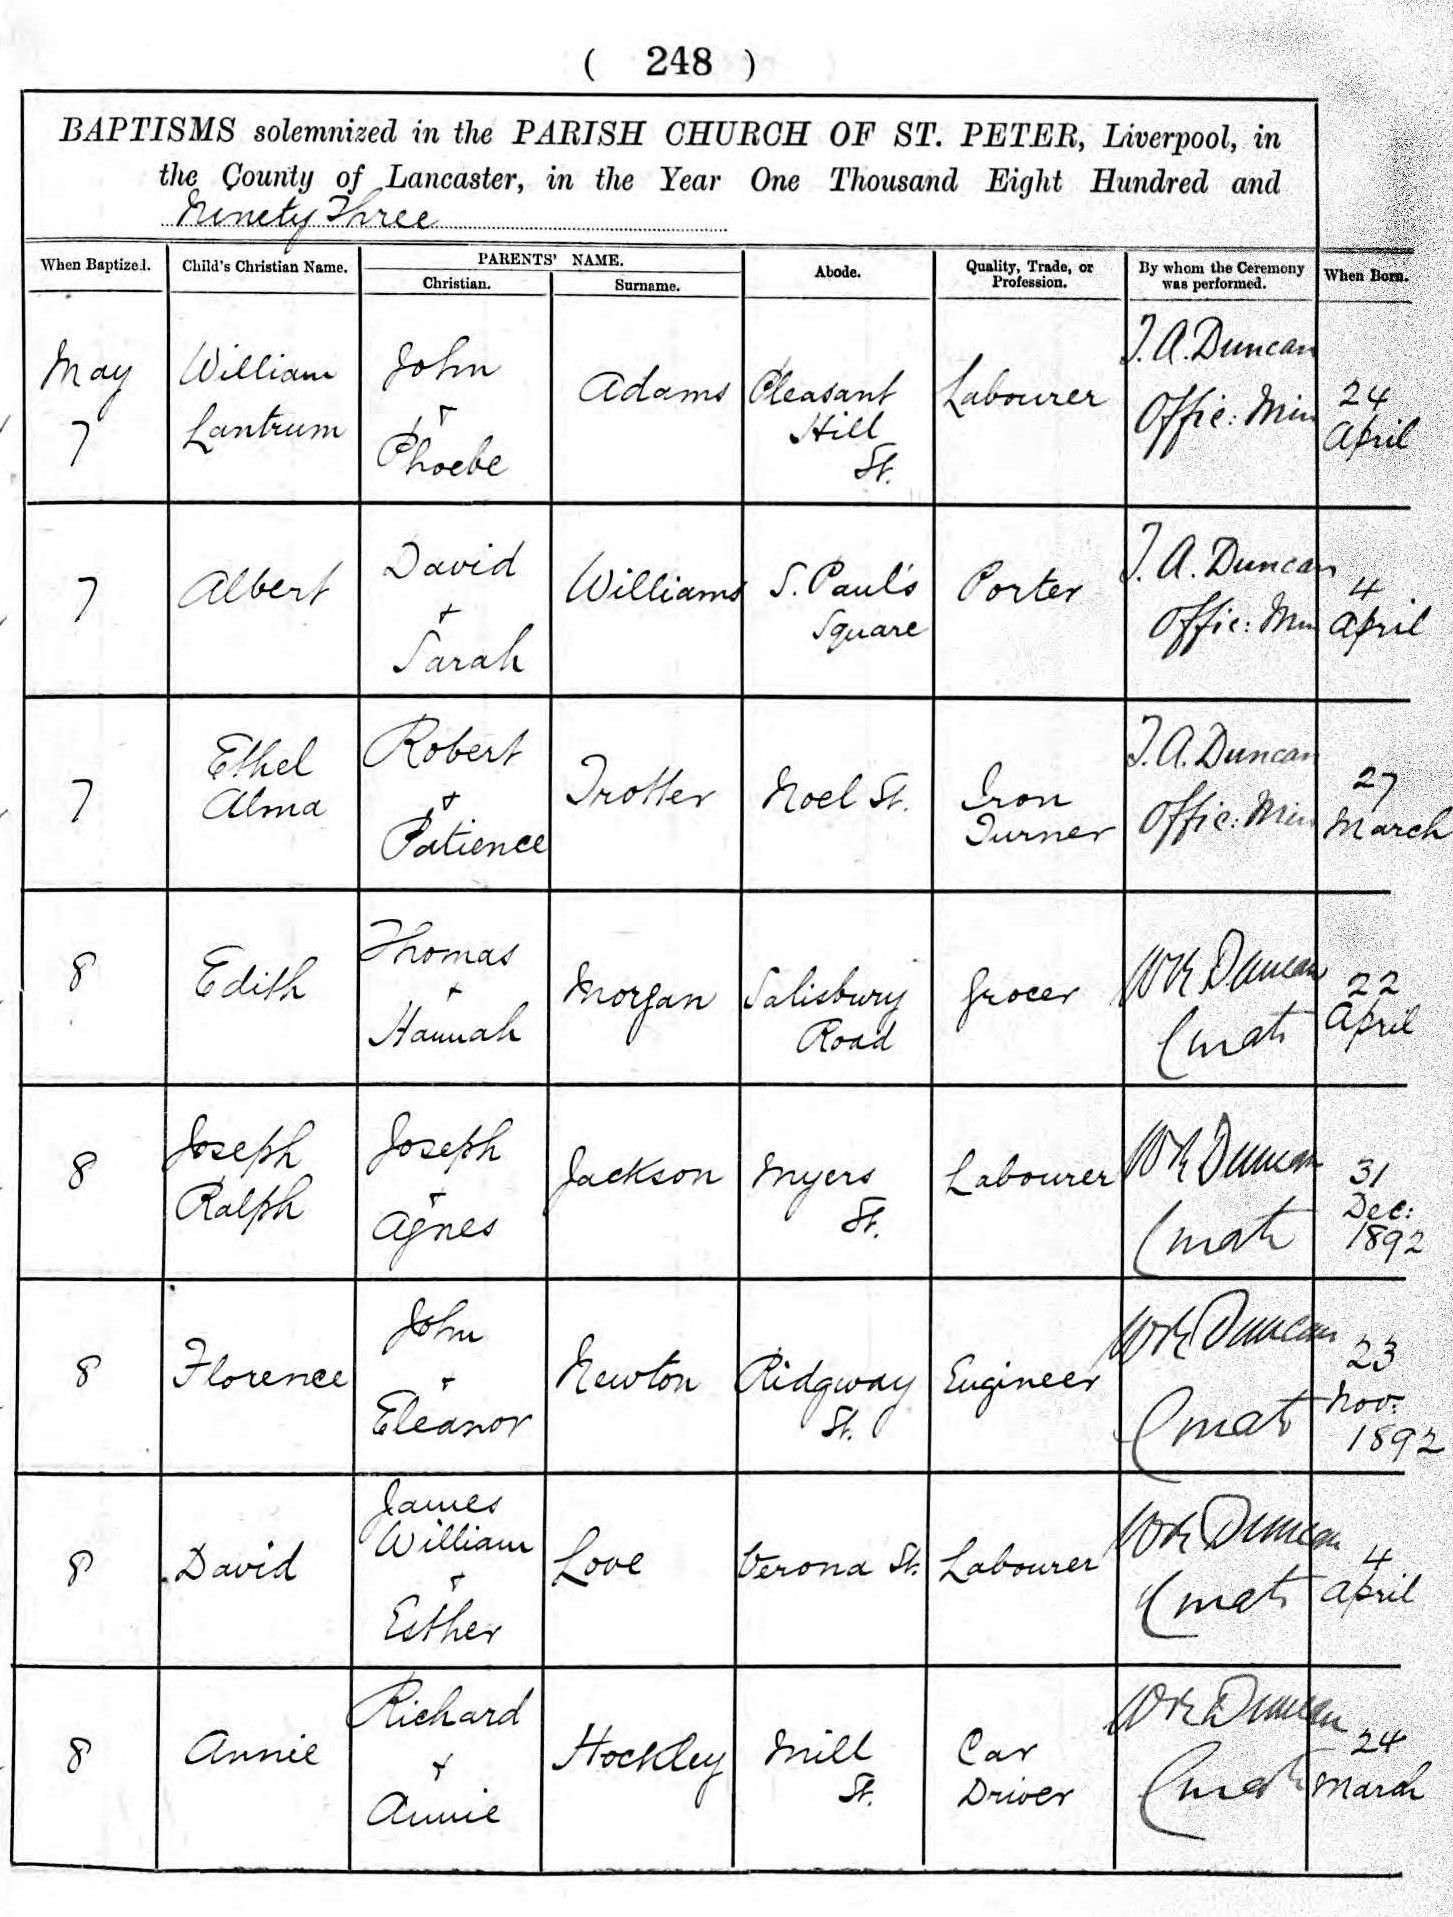 ( 248 )
BAPTISMS solemnized in the PARISH CHURCH OF ST. PETER, Liverpool, in
the County of Lancaster, in the Year One Thousand Eight Hundred and
Ninety Three
When Baptized. Child's Christian Name. PARENTS' NAME. Abode. Quality, Trade, or Profession. By whom the Ceremony was performed. When Born.
Christian. Surname.
May 7 William Lantrum John + Phoebe Adams Pleasant Hill St. Labourer T. A. Duncan Offic: Min 24 April
7 Albert David + Sarah Williams S. Paul's Square Porter T. A. Duncan Offic: Min 4 April
7 Ethel Alma Robert + Patience Trotter Noel St. Iron Turner T. A. Duncan Offic: Min 27 March
8 Edith Thomas + Hannah Morgan Salisbury Road Grocer Duncan 22 April
8 Joseph Ralph Joseph + Agnes Jackson Myers St. Labourer Duncan 31 Dec: 1892
8 Florence John + Eleanor Newton Ridgway St. Engineer Duncan 23 Nov: 1892
8 David James William + Esther Love Verona St. Labourer Duncan 4 April
8 Annie Richard + Annie Hockley Mill St. Car Driver Duncan 24 March